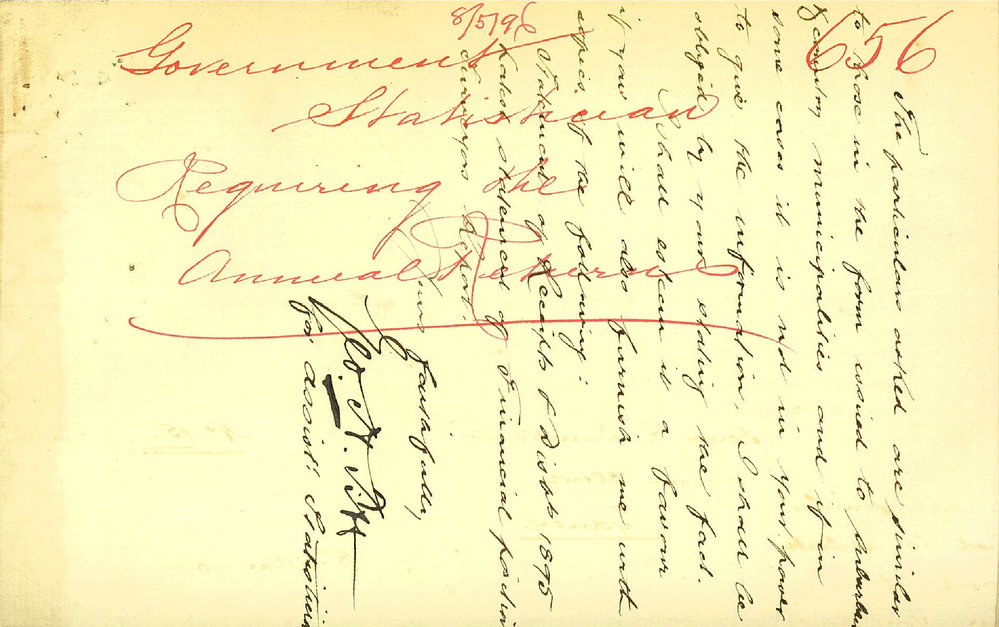 8/5/96
656
Government
Statistician
Requiring the
Annual Returns
The particulars asked are similar
to those in the form issued to suburban
& country municipalities and if in
some cases it is not in your power
to give the information, I shall be
obliged by your stating the fact.
I shall esteem it a favour
if you will also furnish me with
copies of the following:
Statement of Receipts & Disbts 1895
Latest statement of Financial position
Surveyors Report
Yours faithfully,
for, assist: Statistician